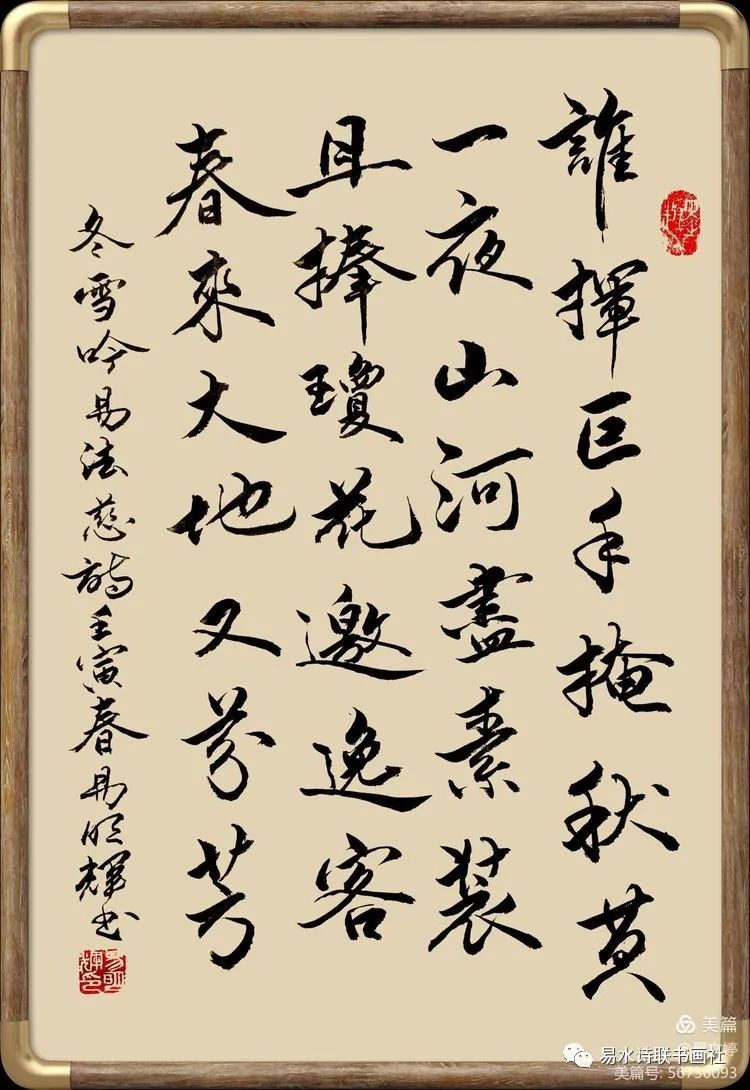 誰揮巨手掩秋黄
一夜山河盡素裝
且捧瓊花邀逸客
春來大地又芬芳
冬雪吟易法慈詩壬寅春易明輝書
易明輝印
美篇
易水诗联书画社
美篇号: 56736093